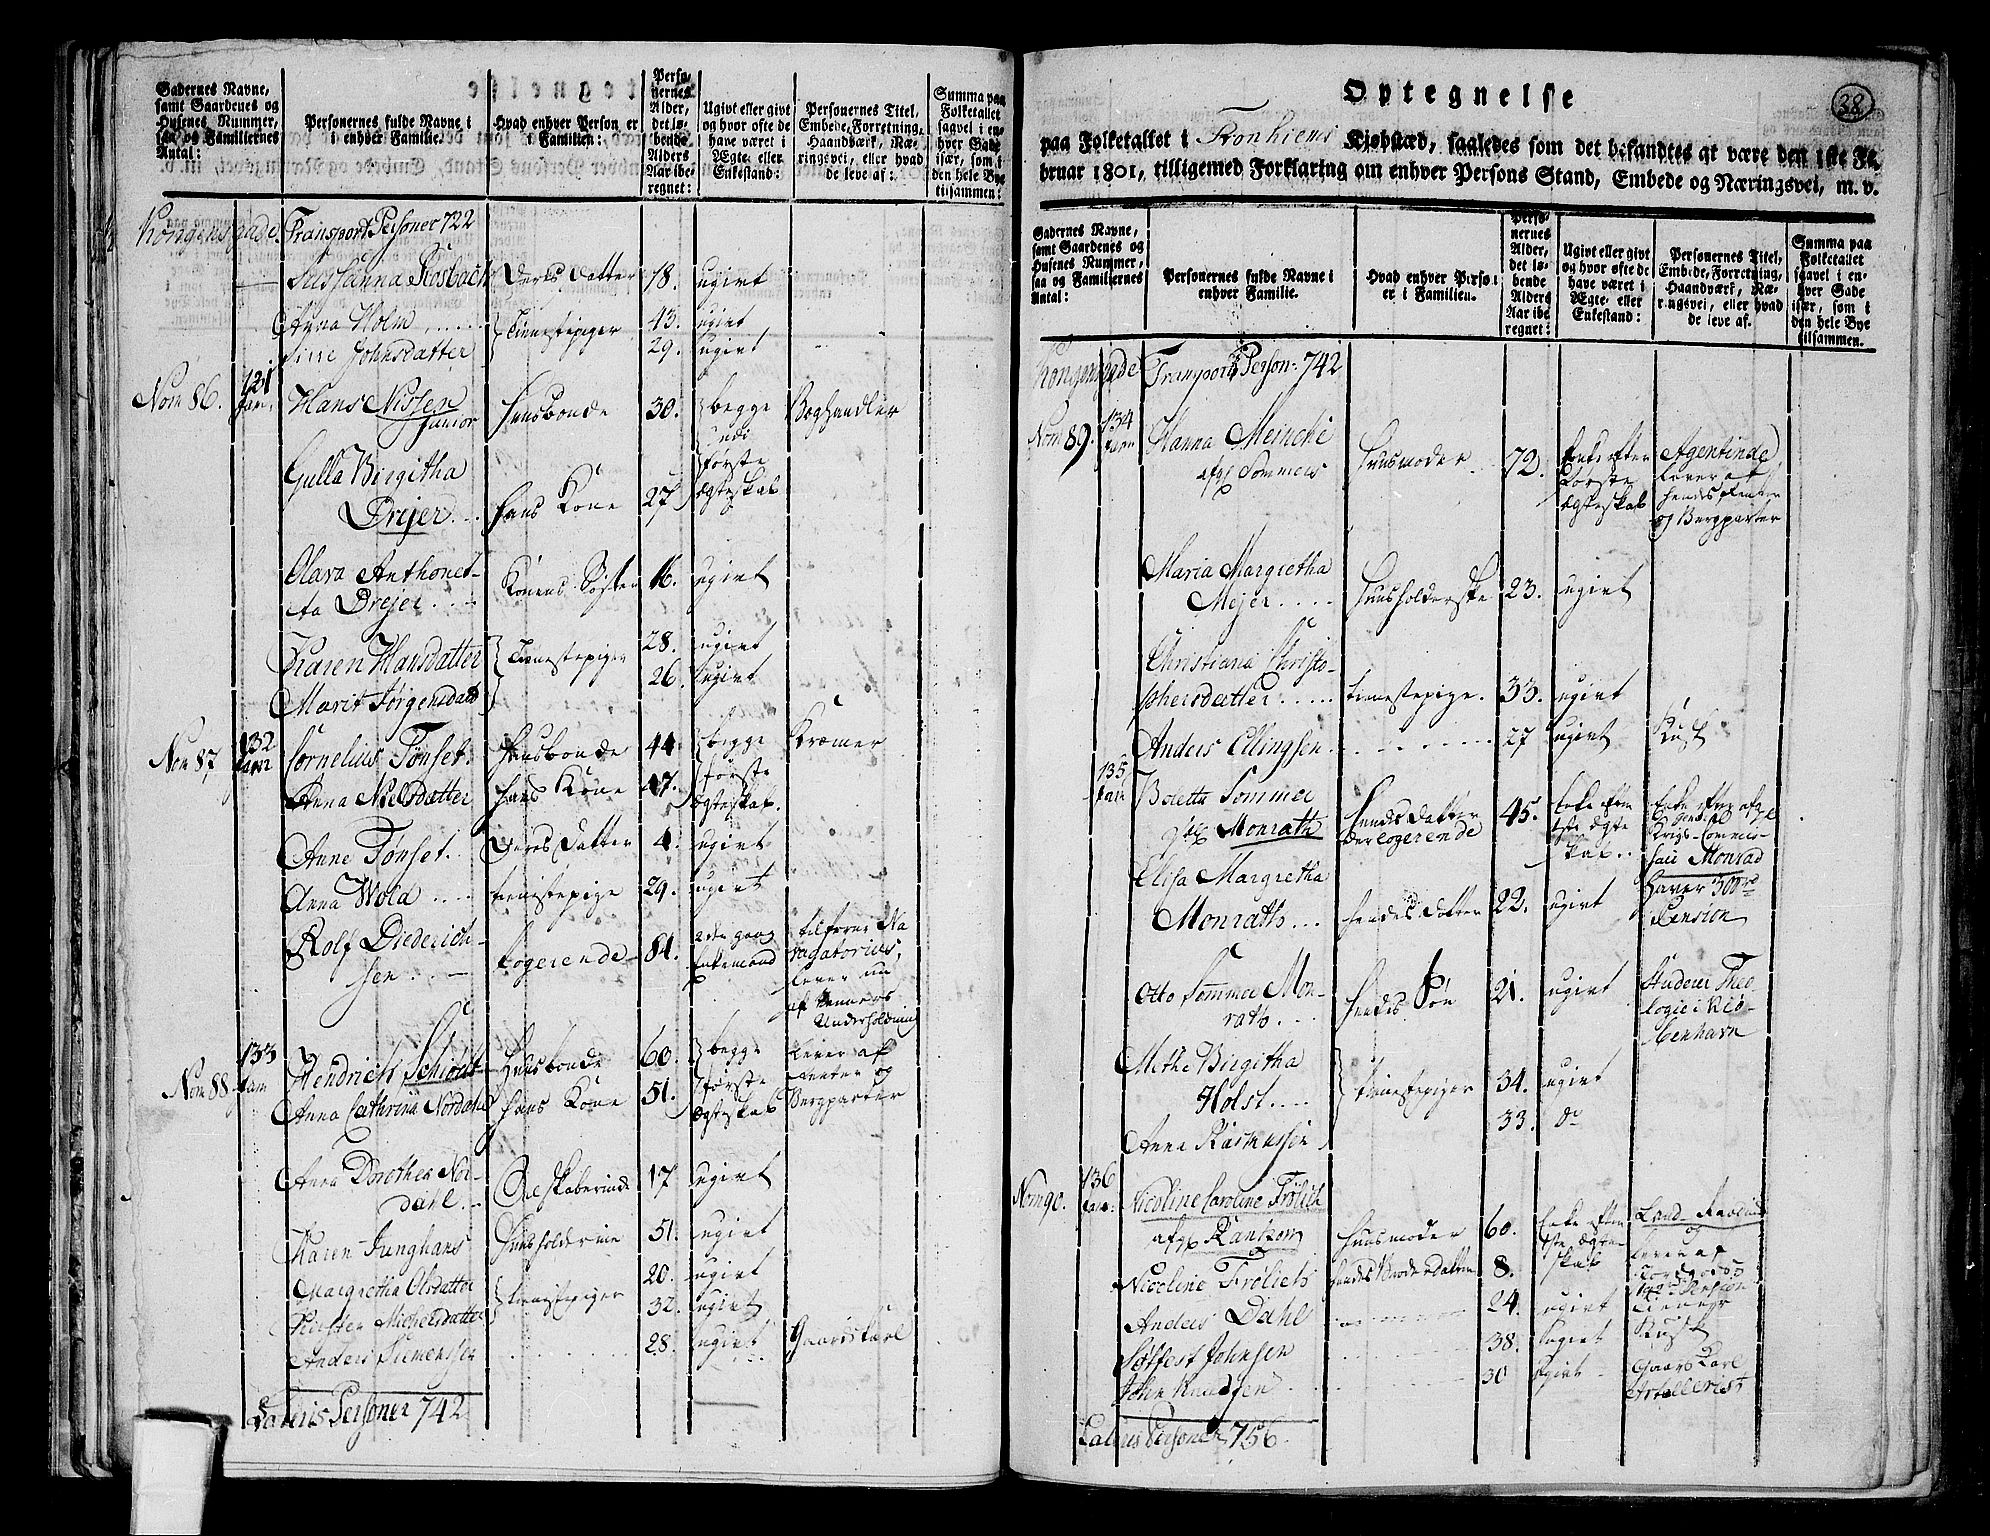 Gadernes Navne,
samt Gaardenes og
Husenes Nummer,
saa og Familiernes
Antal:
Personernes fulde Navne i
i enhver Familie.
Hvad enhver Person er
i Familien:
Perso-
nernes
Alder,
det lø-
bende
Alders
Aar ibe-
regnet:
Ugivt eller givt
og hvor ofte de
have været i
Ægte- eller
Enkestand:
Personernes Titel,
Embede, Forretning,
Haandværk, Næ-
ringsvei, eller hvad
de leve af:
Summa paa
Folketallet
saavel i en-
hver Gade
især, som i
den hele Bye
tilsammen:
Kongens gade. Transport Personer 722
Sushanna Resbach Deres Datter 18. ugivt
Anna Holm Tienestepiger 43. ugivt
Sirie Johnsdatter 29. ugivt
Nom 86. 131 Fam: Hans Nissen Junior Huusbonde 30. begge Boghandler
udi
første
Gulla Birgitha
Drejer hans Kone 27 Ægteskab
Clara Anthonet-
ta Drejer Konens Søster 16. ugivt
Karen Hansdatter Tienestepiger 28. ugivt
Marit Jørgensdatt 26. ugivt
Nom 87 132 Fam Cornelius Tønset Huusbonde 44 begge Kræmer
Anna Nielsdatter hans Kone 47. første
Ægteskab.
Anne Tønset Deres Datter 4. ugivt
Anna Wold tienistepige 29. ugivt
Rolf Diederich-
sen Logerende 84. Enkemand
tilforne Na
vigatorius,
lever nu
af Venners
Underholdning
133
Nom 88 Fam Hendrich Schiødt Huusbonde 60. begge lever af
Anna Cathrina Nordahl hans Kone 51. første Renter og
Ægteskab Bergparter
Anna Dorothea Nor-
dahl Selskaberinde 17 ugivt
Karen Junghans Huusholderinde 51. ugivt
Margretha Olsdatter tienistepiger 20. ugivt
Kirsten Michelsdatter 32. ugivt
Anders Siemenssen 28. ugivt Gaardskarl
Lateris Personer 742
38
Optegnelse
paa Folketallet i Tronhiems Kjøbstæd, saaledes som det befandtes at være den 1ste Fe-
bruar 1801, tilligemed Forklaring om enhver Persons Stand, Embede og Næringsvei, m. v.
Gadernes Navne,
samt Gaardenes og
Husenes Nummer,
saa og Familiernes
Antal:
Personernes fulde Navne i
enhver Familie.
Hvad enhver Perso i
er i Familien.
Perso-
nernes
Alder,
det lø-
bende
Alders
Aar ibe-
regnet:
Ugivt eller givt
og hvor ofte de
have været i
Ægte- eller
Enkestand:
Personernes Titel,
Embede, Forretning,
Haandværk, Næ-
ringsvei, eller hvad
de leve af.
Summa paa
Folketallet
saavel i en-
hver Gade
især, som i
den hele Bye
tilsammen.
Kongens gade Transport Person: 742
Nom 89. 134 Fam Hanna Meincke
afg Sommers Huusmoder 72. Enke efter
første
Ægteskab
Agentinde
lever af
hendes Renter
og Bergparter
Maria Margretha
Mejer Huusholderske 23. ugivt
Christiana Christo-
phersdatter tienestepige 33. ugivt
Anders Ellingsen 27 ugivt Kusk
135 Fam Boletta Sommer
Monrath hendes Datter
der logerende 45. Enke efter
1ste Ægte
skab
Enke efter afg
Krigs-Commis-
sair Monrad
haver 300 rd
Pension
Elisa Margretha
Monrath hendes Datter 22. ugivt
Otto Sommer Mon-
rath hendes Søn 21. ugivt
Student Theo-
logie i Kiø-
benhavn
Mette Birgitha
Holst tienestepiger 34. ugivt
Anna Rasmussen 33. do
Nom 90. 136 Fam: Nicoline Caroline Frölich
afg Rantzow Huusmoder 60. Enke efter
1ste Ægte-
skab
Land-Raadinde
lever af
Jordgods
Pension
Nicoline Frölich hendes Broderdatter 8.
Anders Dahl 24. ugivt Tiener
Solfest Johnsen 38. ugivt Kusk
John Knudsen 30 ugivt Gaards Karl
Artellerist
Lateris Personer 756.